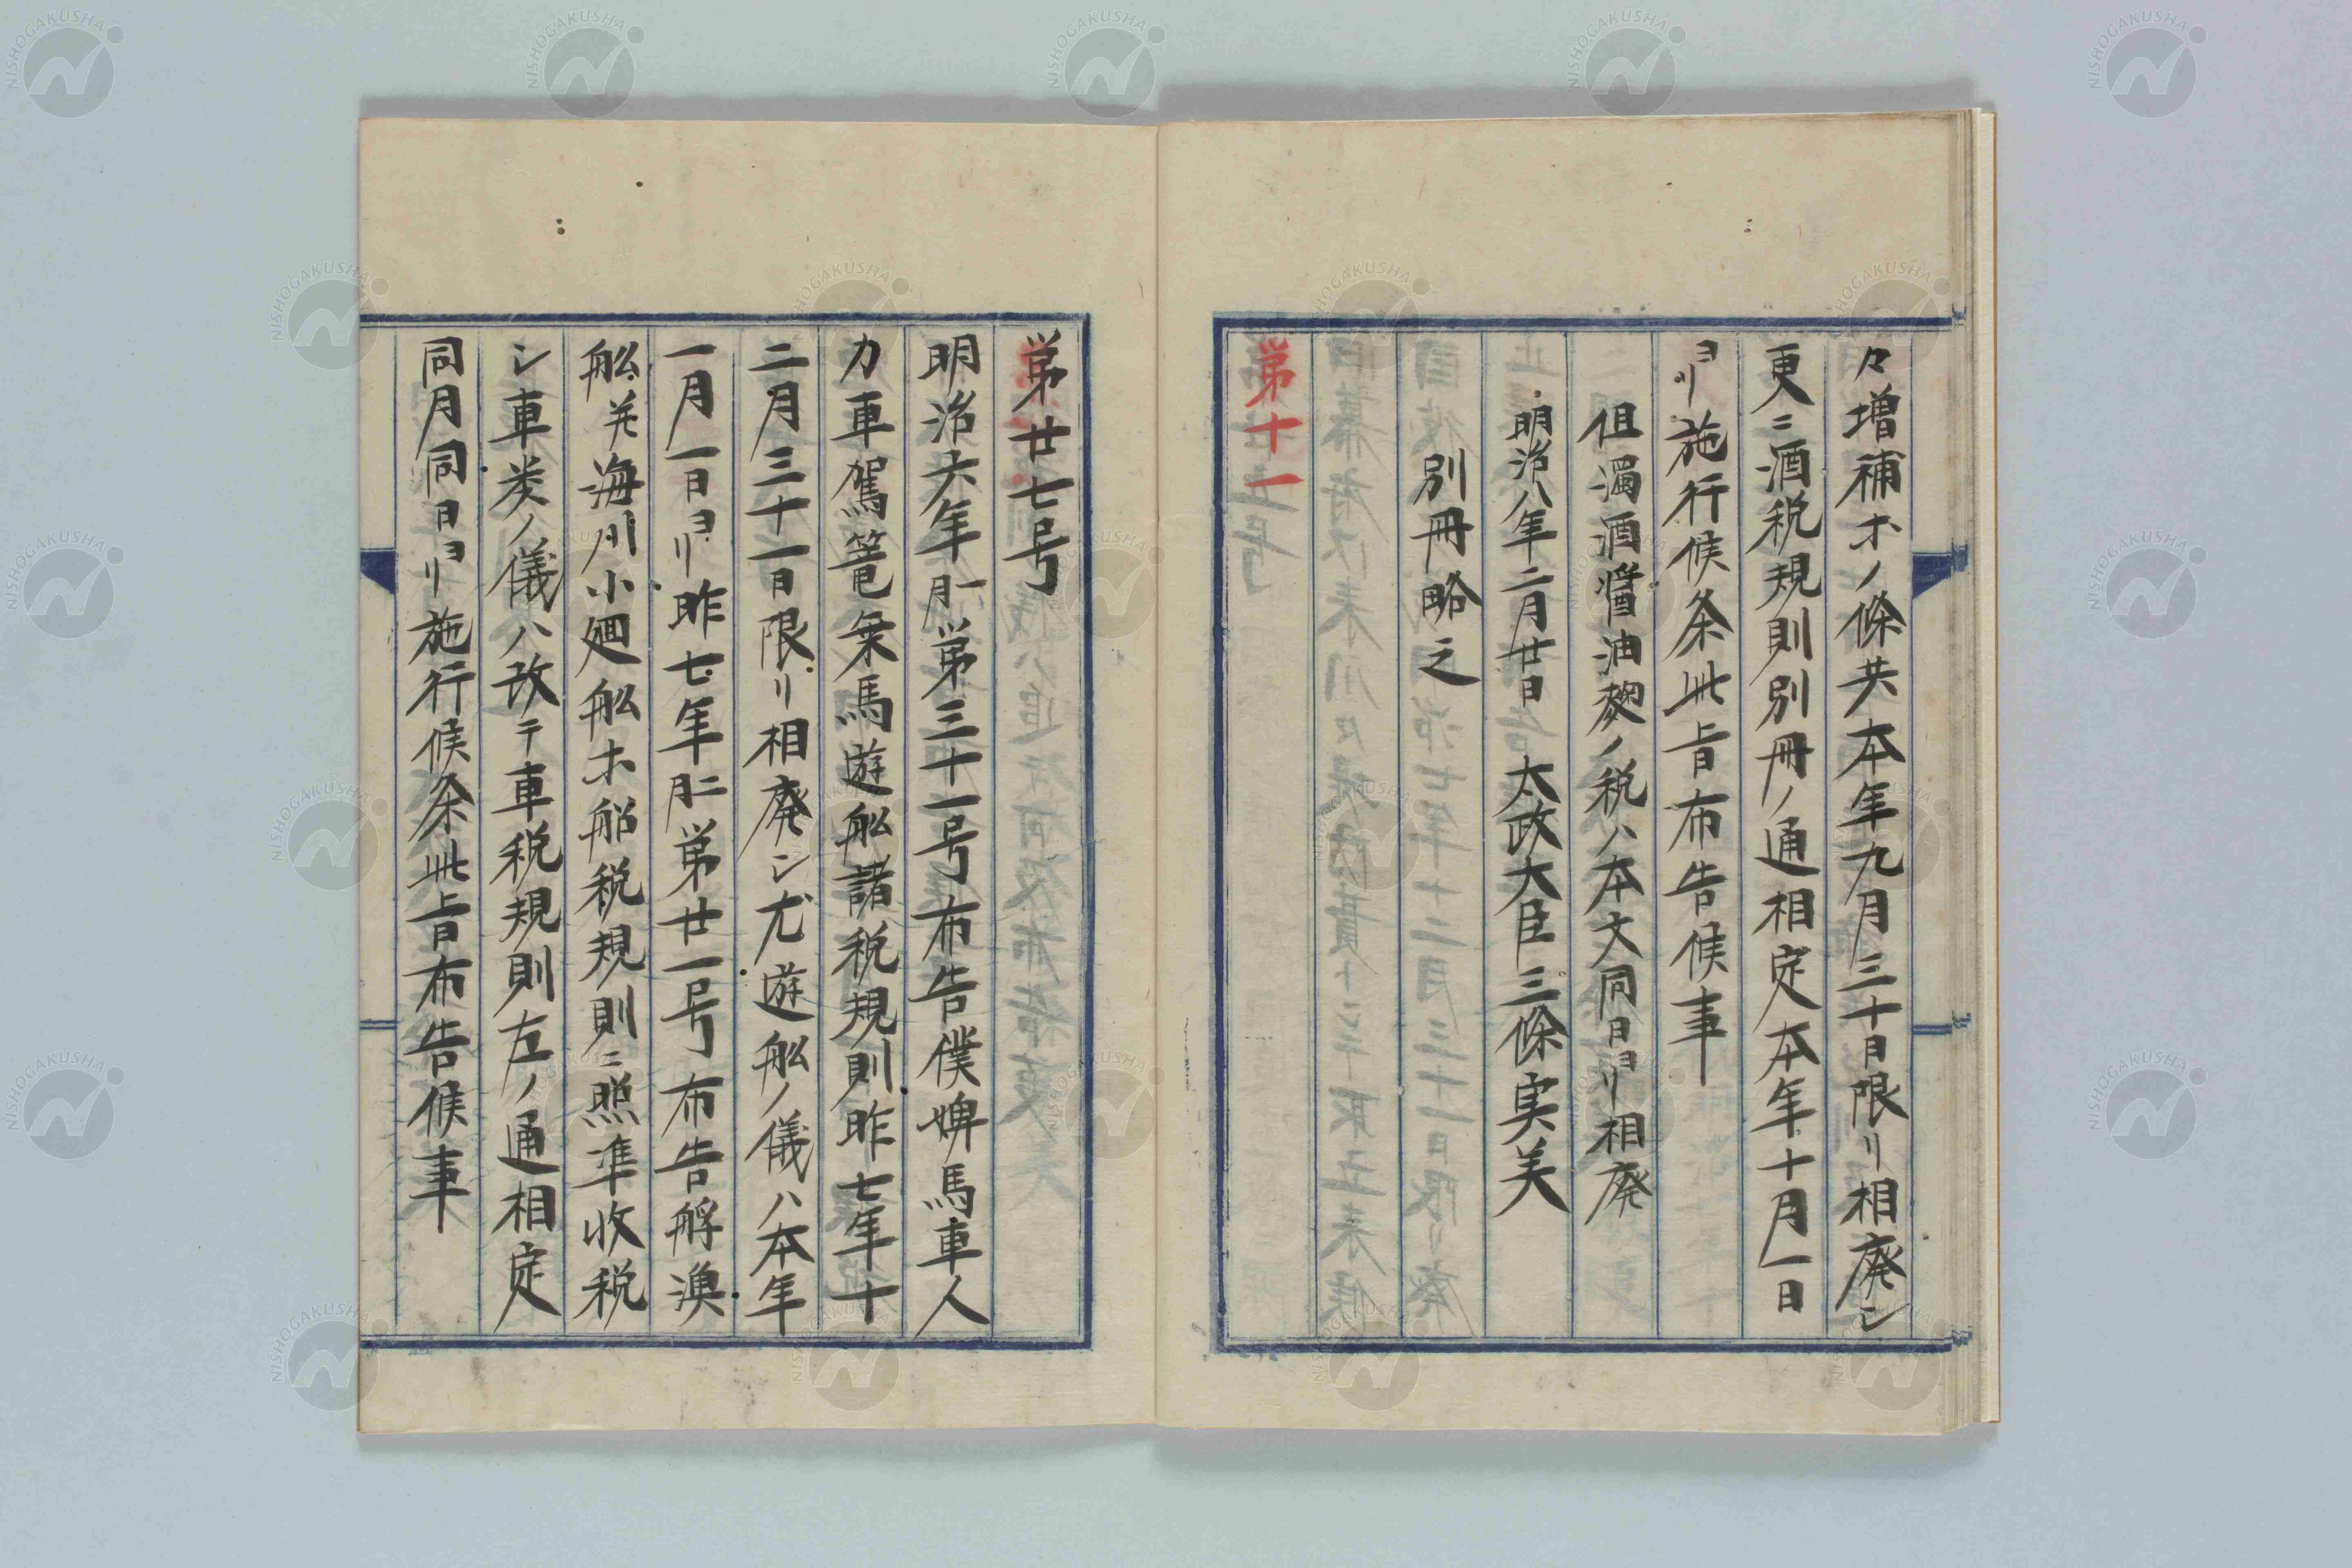 々増補ホノ條共本年九月三十日限リ相廃シ
更ニ酒税規則別冊ノ通相定本年十月一日
ヨリ施行候条此旨布告候事
但濁酒醤油麹ノ税ハ本文同日ヨリ相廃
明治八年二月廿日 太政大臣三條実美
別冊略之
第十一
第廿七号
明治六年一月第三十一号布告僕婢馬車人
力車駕篭乗馬遊舩諸税規則昨七年十
二月三十一日限リ相廃シ尤遊舩ノ儀ハ本年
一月一日ヨリ昨七年二月第廿一号布告艀漁
舩并海川小廻舩ホ船税規則ニ照準收税
シ車类ノ儀ハ改テ車税規則左ノ通相定
同月同日ヨリ施行候条此旨布告候事
NISHOGAKUSHA